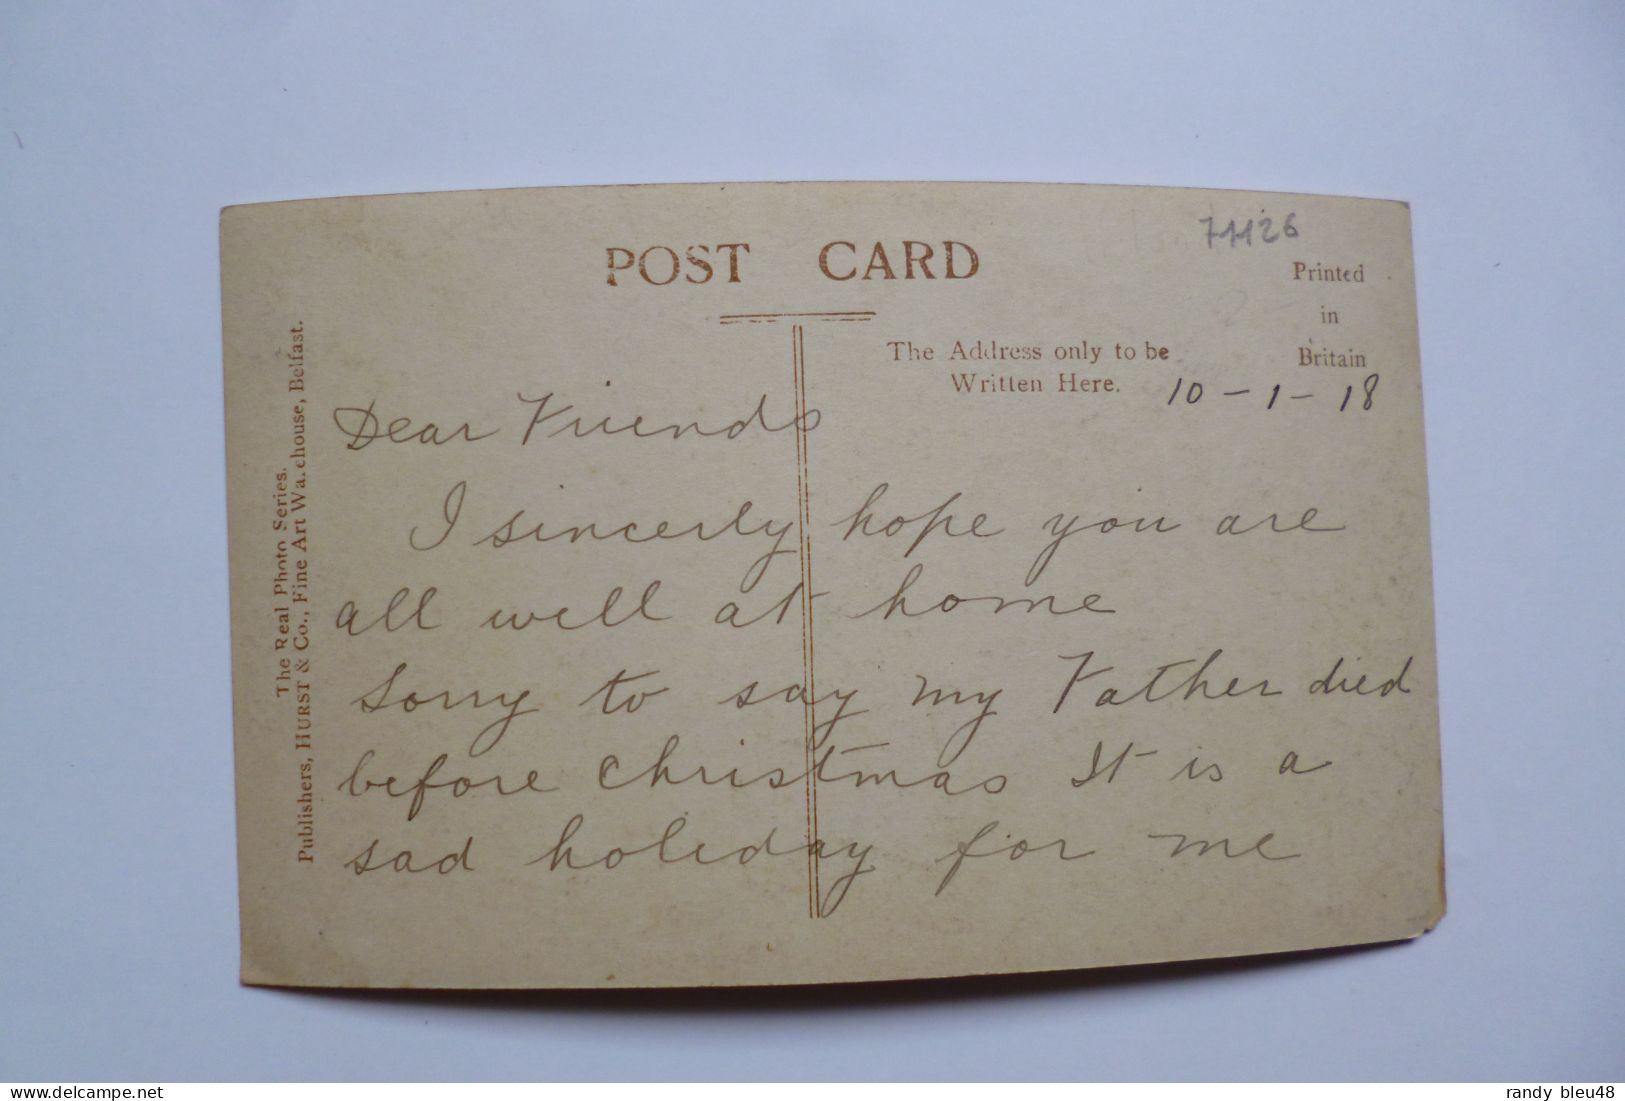 71126
POST CARD
Printed
in
Britain
The Address only to be
Written Here.
10 - 1 - 18
The Real Photo Series.
Publishers, HURST & Co., Fine Art Wa.ehouse, Belfast.
Dear Friends
I sincerly hope you are
all well at home
Sorry to say my Father died
before Christmas It is a
sad holiday for me
www.delcampe.net
randy bleu48